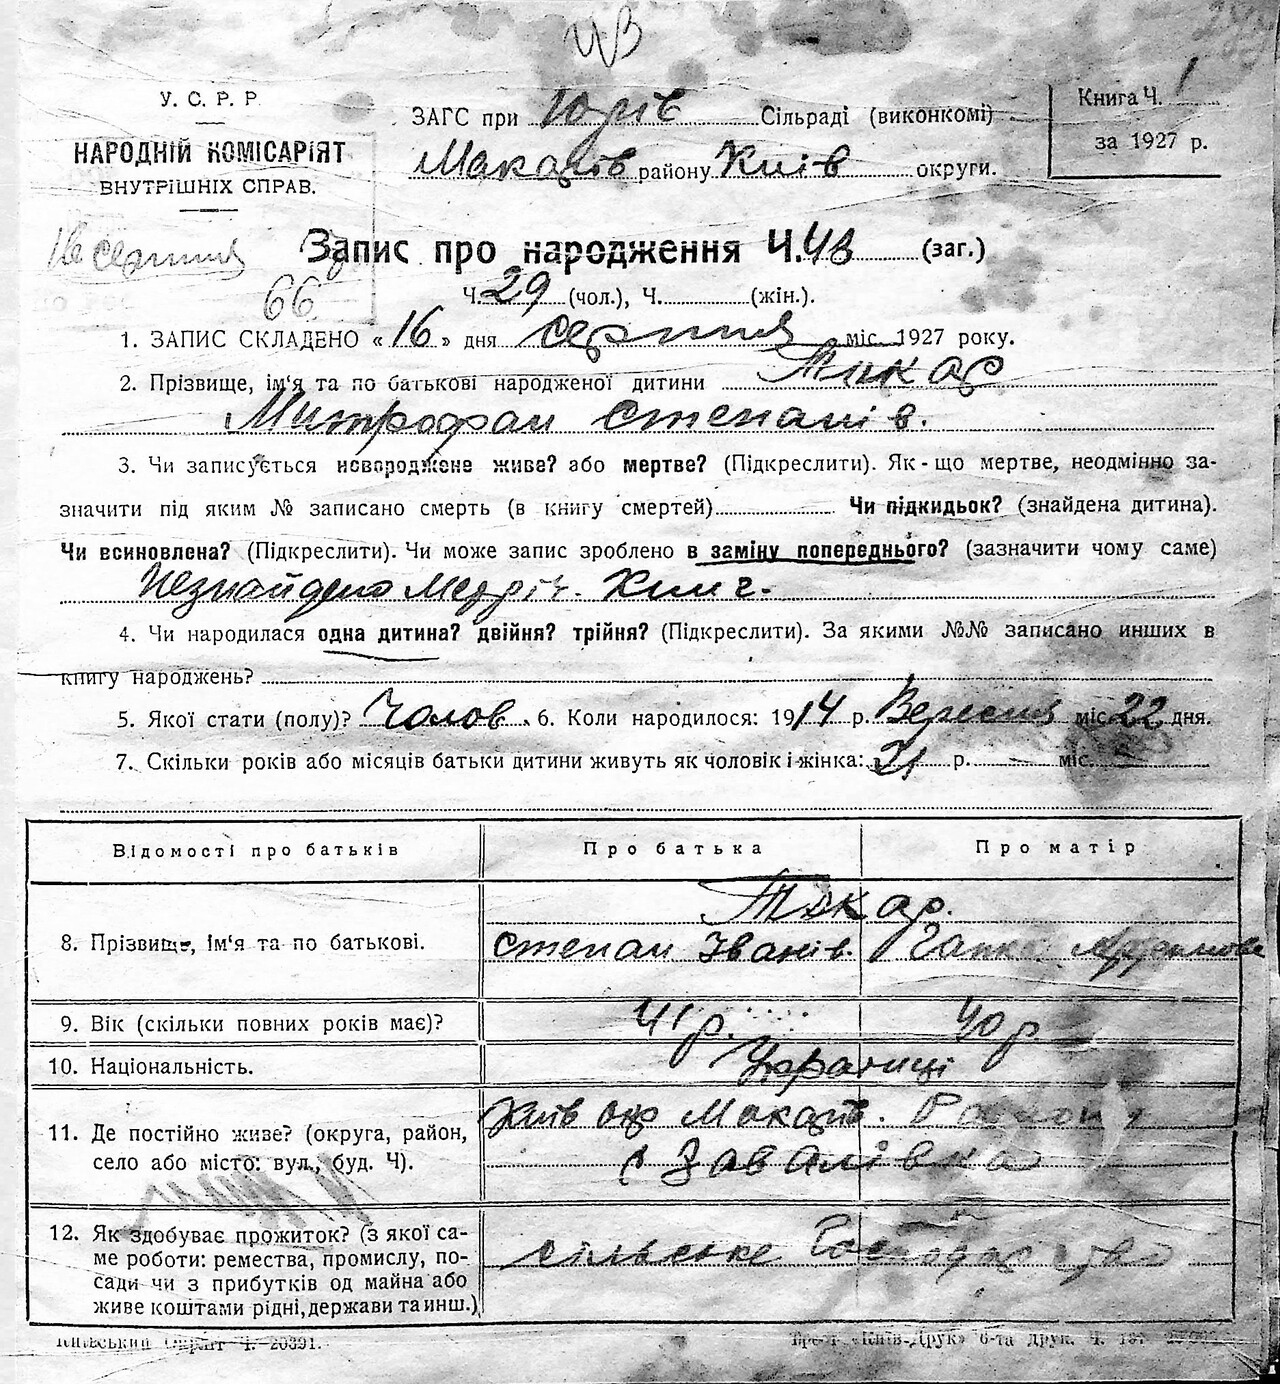 У. С. Р. Р.
НАРОДНІЙ КОМІСАРІЯТ
ВНУТРІШНІХ СПРАВ.
ЗАГС при Юрів Сільраді (виконкомі)
Макарів району Київ округи.
Книга Ч. 1
за 1927 р.
16 серпня
Запис про народження Ч. 48 (заг.)
66
Ч. 29 (чол.), Ч. (жін.).
1. ЗАПИС СКЛАДЕНО « 16 » дня серпня міс. 1927 року.
2. Прізвище, ім'я та по батькові народженої дитини Токар
Митрофан Степанів.
3. Чи записується новороджене живе? або мертве? (Підкреслити). Як-що мертве, неодмінно за-
значити під яким № записано смерть (в книгу смертей) Чи підкидьок? (знайдена дитина).
Чи всиновлена? (Підкреслити). Чи може запис зроблено в заміну попереднього? (зазначити чому саме)
Незнайдено Метрич. Книг.
4. Чи народилася одна дитина? двійня? трійня? (Підкреслити). За якими №№ записано инших в
книгу народжень?
5. Якої стати (полу)? Чолов. 6. Коли народилося: 1914 р. Вересня міс. 22 дня.
7. Скільки років або місяців батьки дитини живуть як чоловік і жінка: 21 р. міс.
Відомості про батьків Про батька Про матір
Токар.
8. Прізвище, ім'я та по батькові. Степан Іванів. Гапка
9. Вік (скільки повних років має)? 41 р. 40 р.
10. Національність. Українці
11. Де постійно живе? (округа, район, Київ окр Макарів. Району
село або місто: вул., буд. Ч). с Завалівка
12. Як здобуває прожиток? (з якої са-
ме роботи: ремества, промислу, по- сільське Господарство
сади чи з прибутків од майна або
живе коштами рідні, держави та инш.)
Київський Окрліт Ч. 20391.
Трест «Київ-Друк» 6-та друк. Ч.